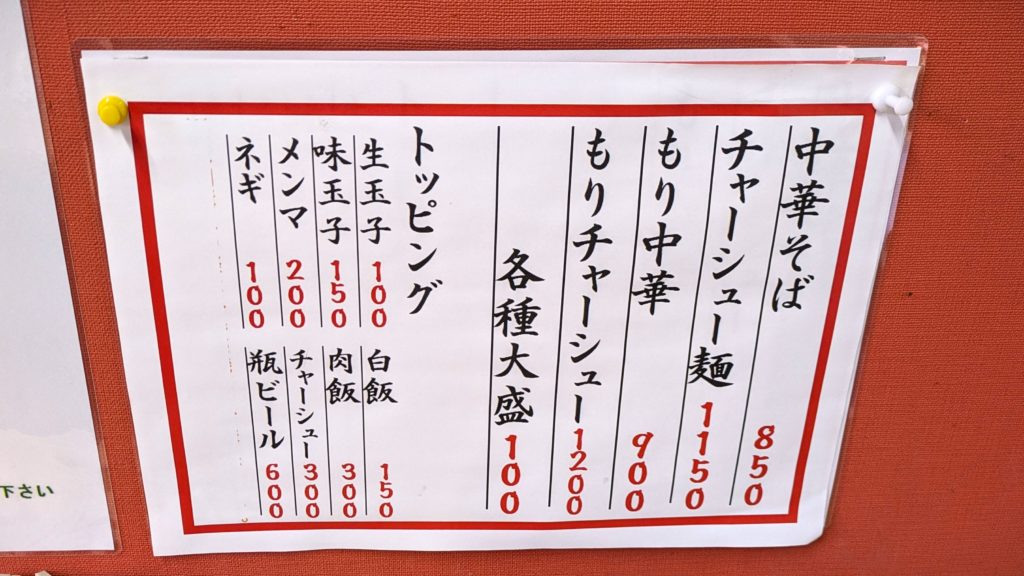 中華そば 850
チャーシュー麺 1150
もり中華 900
もりチャーシュー 1200
各種大盛 100
トッピング
生玉子 100
味玉子 150
メンマ 200
ネギ 100
白飯 150
肉飯 300
チャーシュー 300
瓶ビール 600
下さい